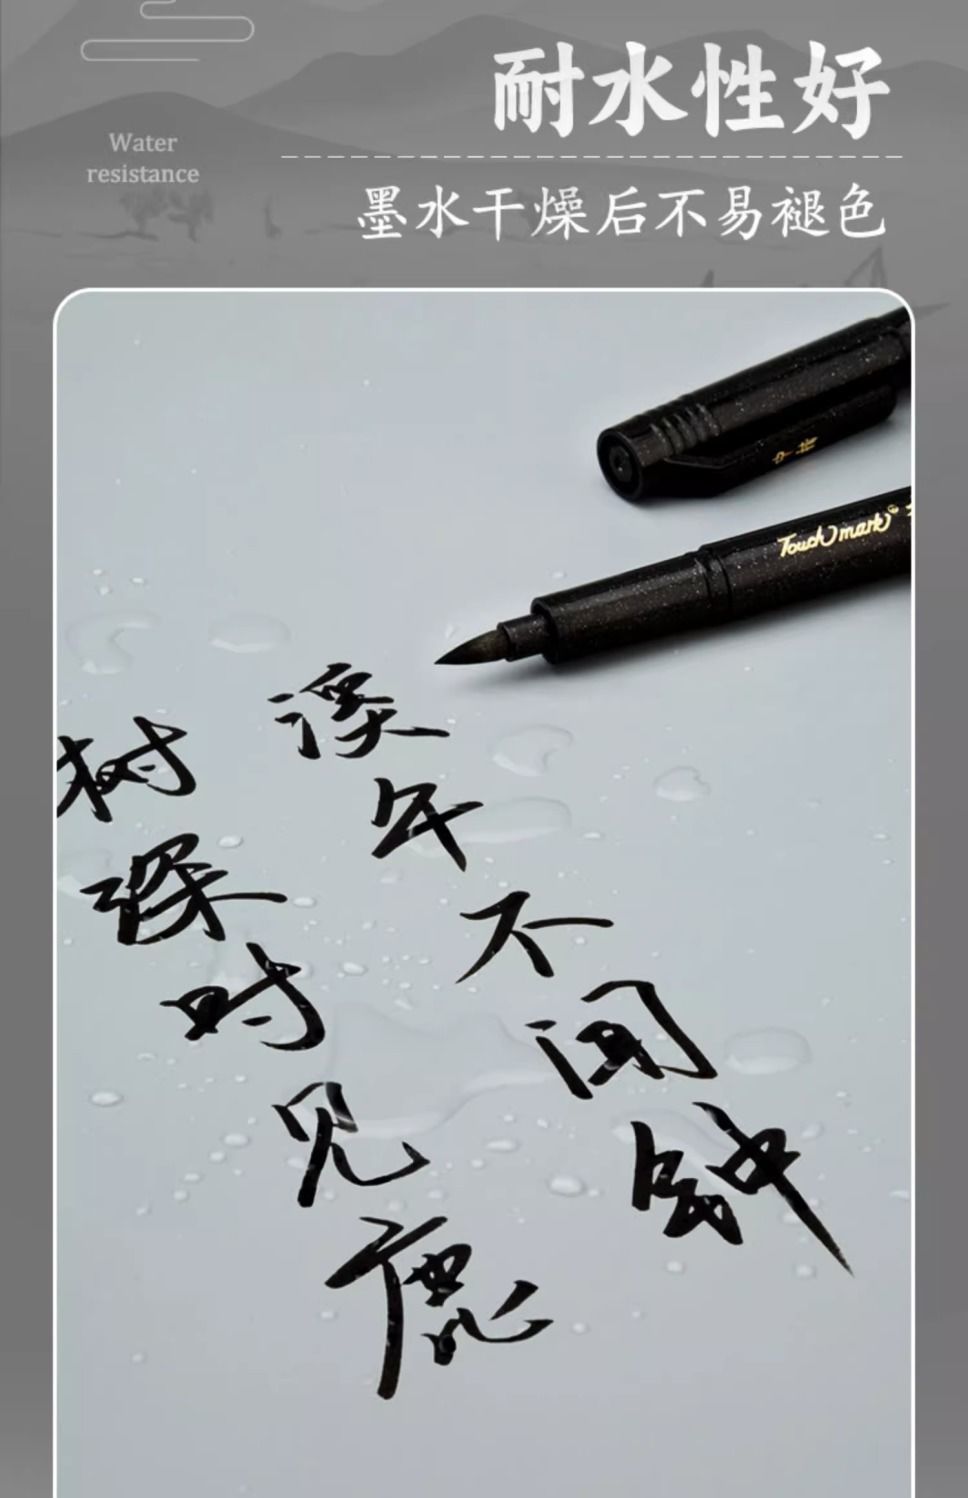 耐水性好
Water
resistance
墨水干燥后不易褪色
Touch mark
树深时见鹿
溪午不闻钟